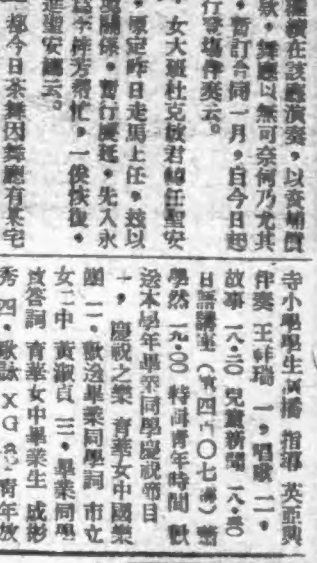 在該廳演奏，以資補償
歌，舞廳以無可奈何乃尤其
，暫訂合同一月，自今日起
行登場伴奏云。
女大班杜克敏君轉任聖安
，原定昨日走馬上任，茲以
關係，暫行展延，先入永
爲李梓芳幫忙，一俟恢復，
進聖安娜云。
都今日茶舞因舞廳有某宅
寺小學學生演播 指導 英亞
伴奏 王祥瑞 一，唱歌 二，
故事 一八·三〇 兒童新聞 一八·
日語講座（第四〇七講） 蕭
學然 一九·〇〇 特訓青年時間 歡
送本學年畢業同學慶祝節目
一，慶祝之樂 育華女中國樂
團 二，歡送畢業同學詞 市立
女二中 黃淑貞 三，畢業同學
致答詞 育華女中畢業生 成彬
秀 四，歌詠 XG 青年放